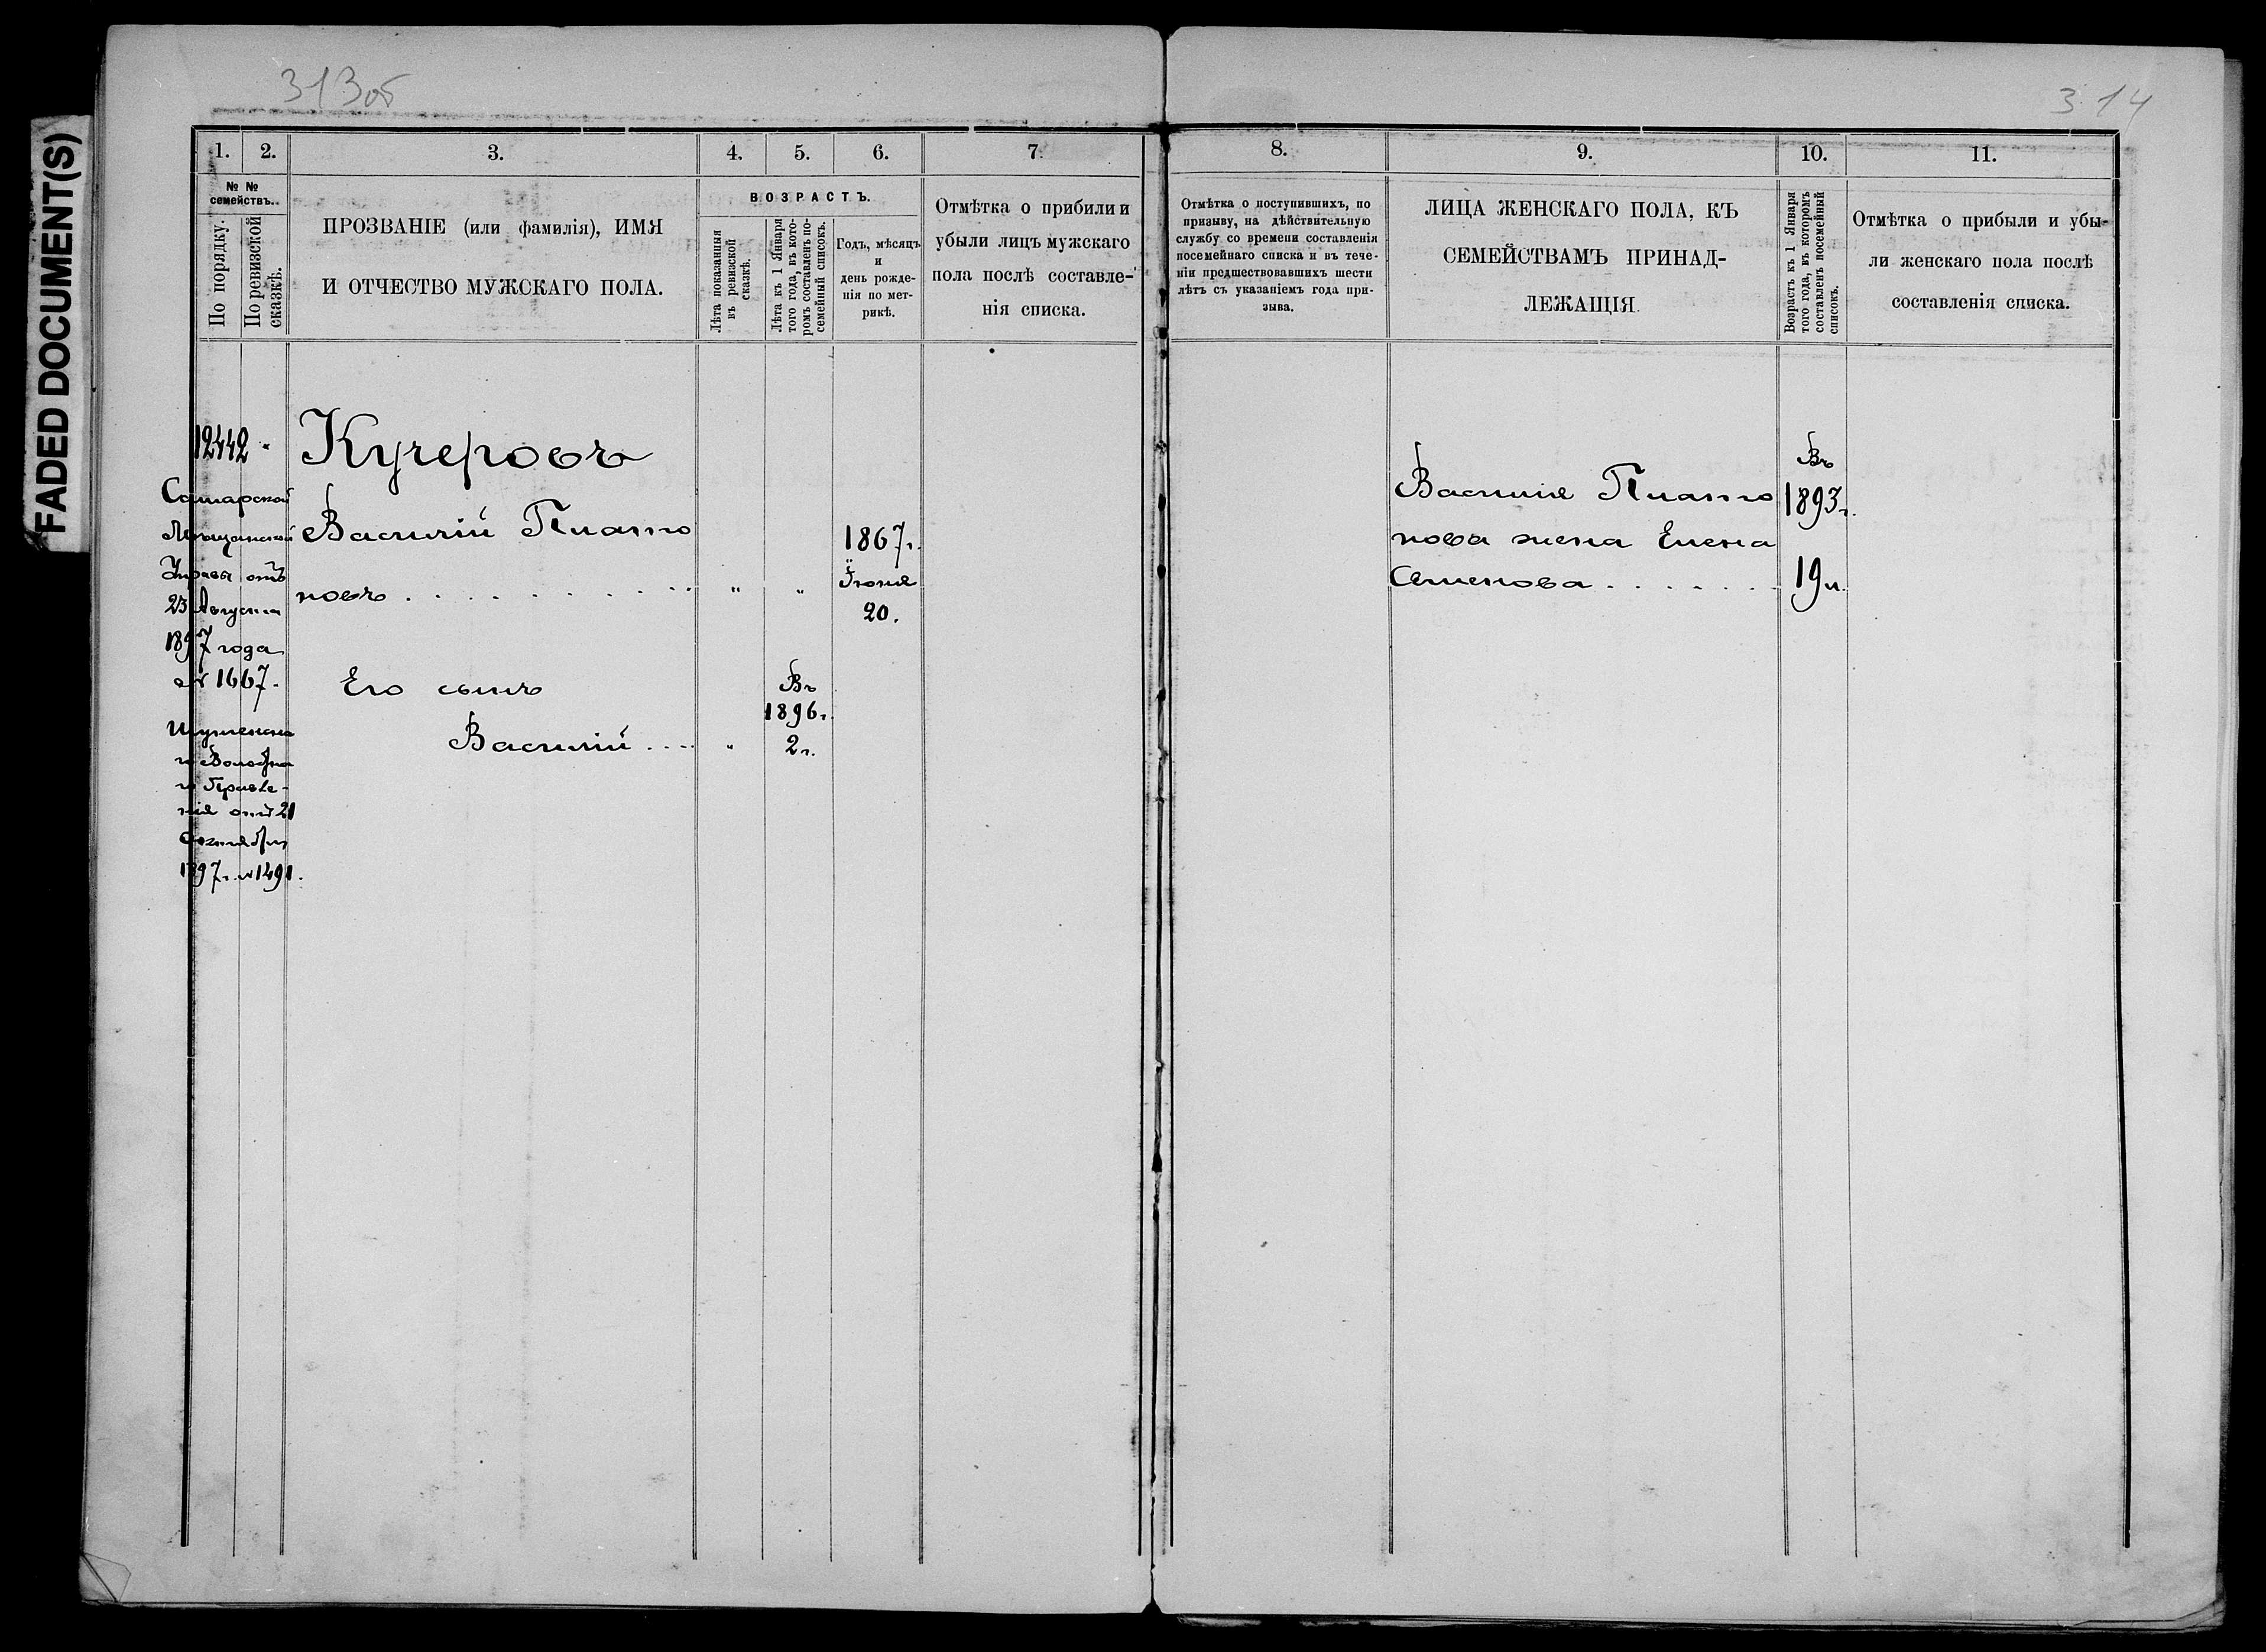 FADED DOCUMENT(S)
313об
314
1.
2.
3.
4.
5.
6.
7.
8.
9.
10.
11.
№ №
семействъ.
По порядку.
По ревизской
сказкѣ.
ПРОЗВАНІЕ (или фамилія), ИМЯ
И ОТЧЕСТВО МУЖСКАГО ПОЛА.
ВОЗРАСТЪ.
Лѣта показанныя
въ ревизской
сказкѣ.
Лѣта къ 1 Января
того года, въ кото-
ромъ составленъ по-
семейный списокъ.
Годъ, мѣсяцъ
и
день рожде-
нія по мет-
рикѣ.
Отмѣтка о прибили и
убыли лицъ мужскаго
пола послѣ составле-
нія списка.
Отмѣтка о поступившихъ, по
призыву, на дѣйствительную
службу со времени составленія
посемейнаго списка и въ тече-
ніи предшествовавшихъ шести
лѣтъ съ указаніемъ года при-
зыва.
ЛИЦА ЖЕНСКАГО ПОЛА, КЪ
СЕМЕЙСТВАМЪ ПРИНАД-
ЛЕЖАЩІЯ.
Возрастъ къ 1 Января
того года, въ которомъ
составленъ посемейный
списокъ.
Отмѣтка о прибыли и убы-
ли женскаго пола послѣ
составленія списка.
12442 "
Самарской
Мѣщанской
Управы отъ
23 Августа
1897 года
№ 1667.
нія отъ 21
Октября
1897 г. № 1491.
Кучеровъ
Василій Плато
новъ . . . . . . . . . . " "
1867 г.
Іюня
20.
Его сынъ
Василій . . . . "
Въ
1896 г.
2 г.
Василія Плато
нова жена Елена
Семенова . . . . . . .
Въ
1893 г.
19 л.